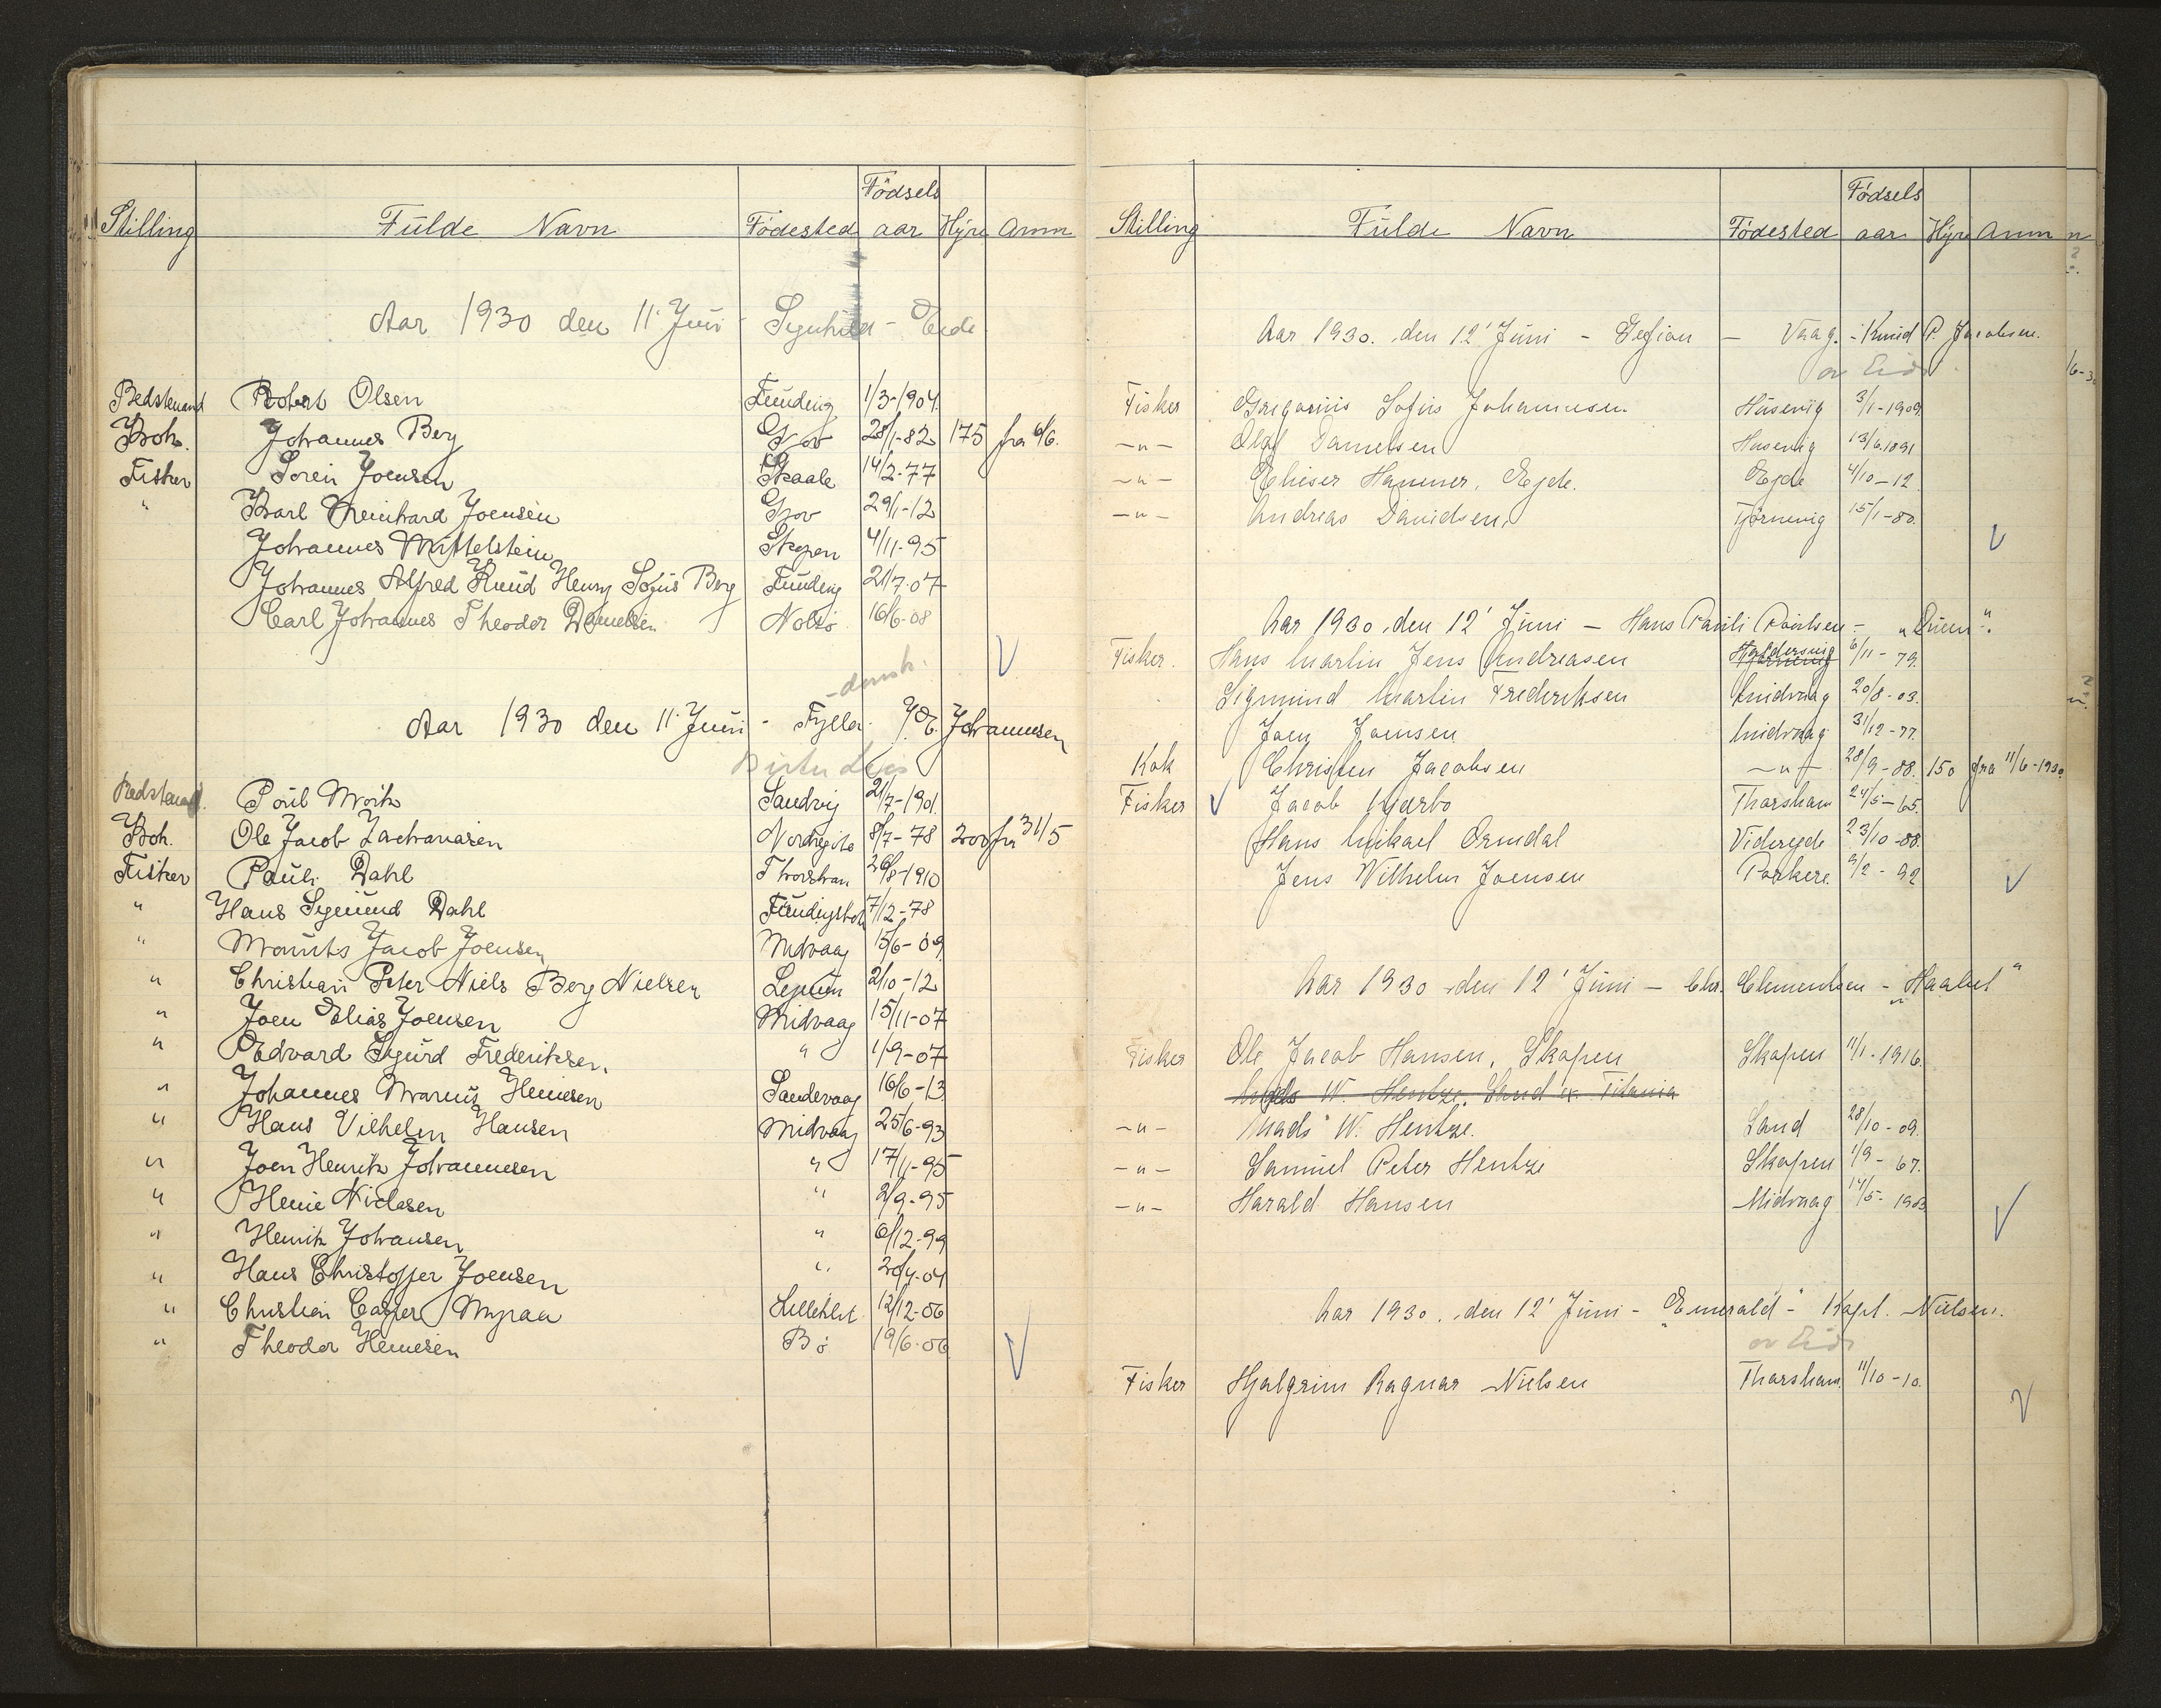 Stilling Fulde Navn Fødested Fødsels aar Hyre Anm
Aar 1930 den 11' Juni - Sgnhild - Eide
Bedstemand Robert Olsen Funding 1/3-1904
Kok. Johannes Berg Gjov 28/1-82 175 fra 6/6.
Fisker Soren Joensen Skaale 14/2-77
" Karl Meinhard Joensen Gjov 29/1-12
Johannes Mittelstein Skopen 4/11-95
Johannes Alfred Knud Henry Sofus Berg Funding 21/7-07
Carl Johannes Theodor Danielsen Nolsö 16/6-08
- dansk.
Aar 1930 den 11' Juni - Fylla. J. E. Johannesen
Bedstemand. Poul Mork Sandvig 21/7-1901
Kok. Ole Jacob Zachariasen Nordregøte 8/7-78 200 fra 31/5
Fisker Pauli Dahl Thorshavn 26/8-1910
" Hans Sigmund Dahl Fundingsbotn 7/12-78
" Mourits Jacob Joensen Midvaag 15/6-09
" Christian Peter Niels Berg Nielsen 2/10-12
" Joen Elias Joensen Midvaag 15/11-07
" Edvard Sigurd Frederiksen. " 1/9-07
" Johannes Marius Heinesen Sandevaag 16/6-13
" Hans Vilhelm Hansen Midvaag 25/6-93
" Joen Henrik Johannesen " 17/11-95
" Heine Niclasen " 2/9-95
" Henrik Johansen " 6/12-99
" Hans Christoffer Joensen "
" Christian Casper Myraa 12/12-06
" Theodor Heinesen Bö 19/6-06
Stilling Fulde Navn Fødested Fødsels aar Hyre Anm
Aar 1930. den 12' Juni - Gefion - Vaag. - Knud P. Jacobsen.
av Eidi
Fisker Gregorius Sofus Johannesen Husevig 3/1-1909
-"- Olaf Danielsen Husevig 13/6 1891
-"- Elieser Hammer, Ejde. Ejde 4/10-12
-"- Andreas Davidsen. Tjörnevig 15/1-80.
Aar 1930. den 12' Juni - Hans Pauli Poulsen -
Fisker. Hans Martin Jens Andreasen Haldersvig 6/11-79.
Sigmund Martin Frederiksen Midvaag 20/8-03.
Joen Joensen Midvaag 31/12-77.
Kok Christen Jacobsen -"- 28/9-88. 150 fra 11/6-1930
Fisker Jacob Mørbo Thorshavn 24/5-65.
Hans Mikael Ormdal Viderejde 23/10-88.
Jens Wilhelm Joensen Porkere. 9/2-92
Aar 1930 den 12' Juni - Chr. Clementsen - "Haabet"
Fisker Ole Jacob Hansen, Skopen Skopen 11/1-1916.
Mads W. Hentze. Sand ex. Titania
-"- Mads W. Hentze. Sand 28/10-09.
-"- Samuel Peter Hentze Skopen 1/9-67.
-"- Harald Hansen Midvaag 14/5-1903
Aar 1930. den 12' Juni - "Emerald" - Kapt. Nielsen.
av Eidi
Fisker Hjalgrim Ragnar Nielsen Thorshavn. 11/10-10.